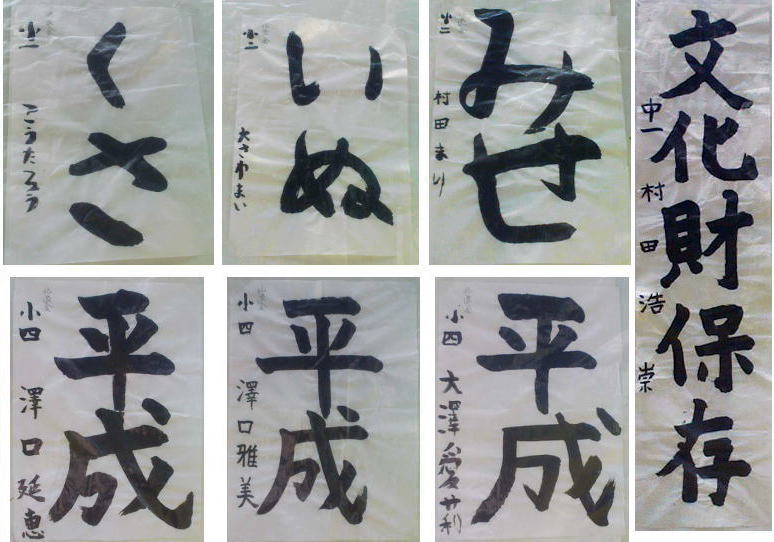 くさ
小二
こうたろう
いぬ
小二
大さわまい
みせ
小二
村田まり
文化財保存
中一
村田浩崇
平成
小四
澤口延恵
平成
小四
澤口雅美
平成
小四
大澤愛莉